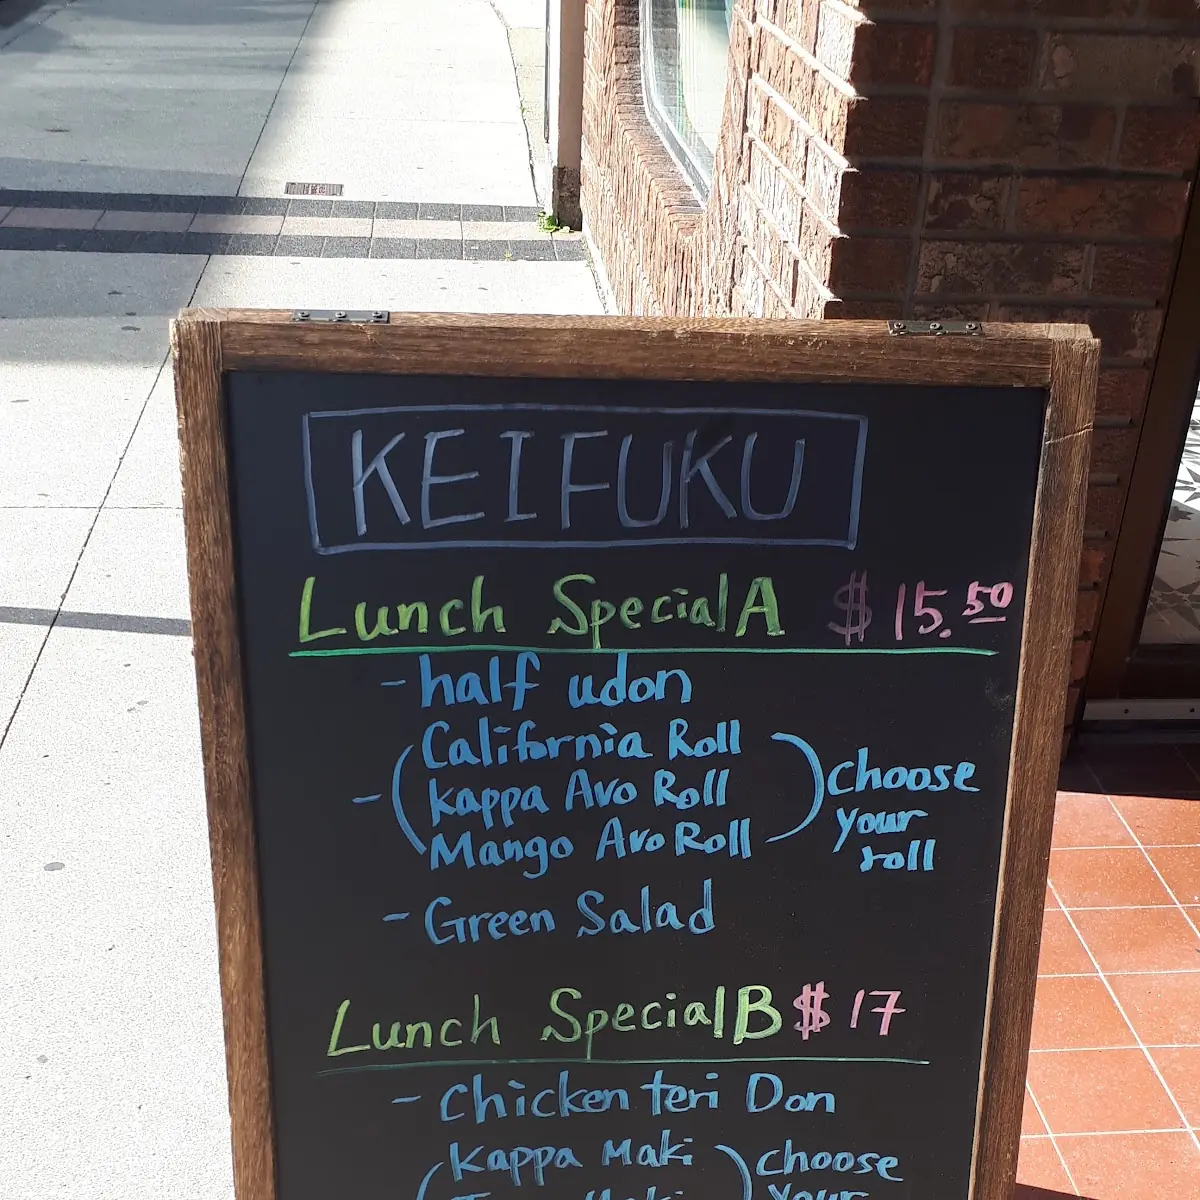 KEIFUKU
Lunch Special A $15.50
- half udon
California Roll
- Kappa Avo Roll
Mango Avo Roll
choose
your
roll
- Green Salad
Lunch Special B $17
- Chicken teri Don
Kappa Maki
choose
Maki
your